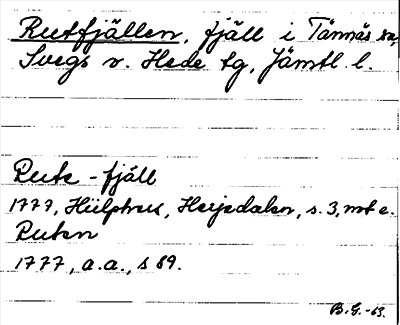 Rutfjällen, fjäll i Tännäs sn,
Svegs o. Hede tg, Jämtl. l.
Rute-fjäll
1777, Hülphers, Herjedalen, s. 3, not e.
Ruten
1777, a.a., s 89.
B.G.-63.